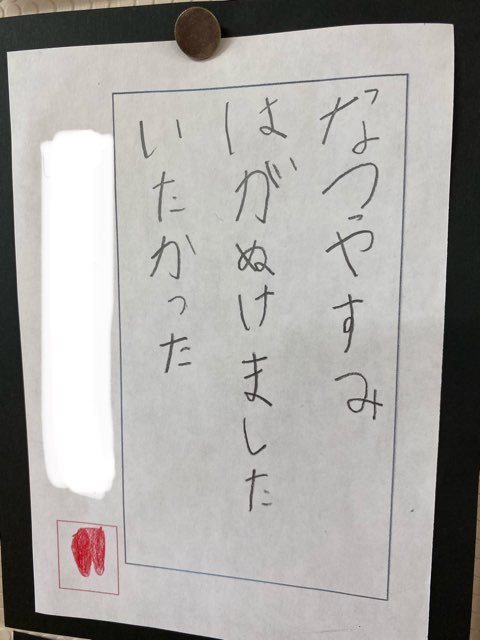 なつやすみ
はがぬけました
いたかった